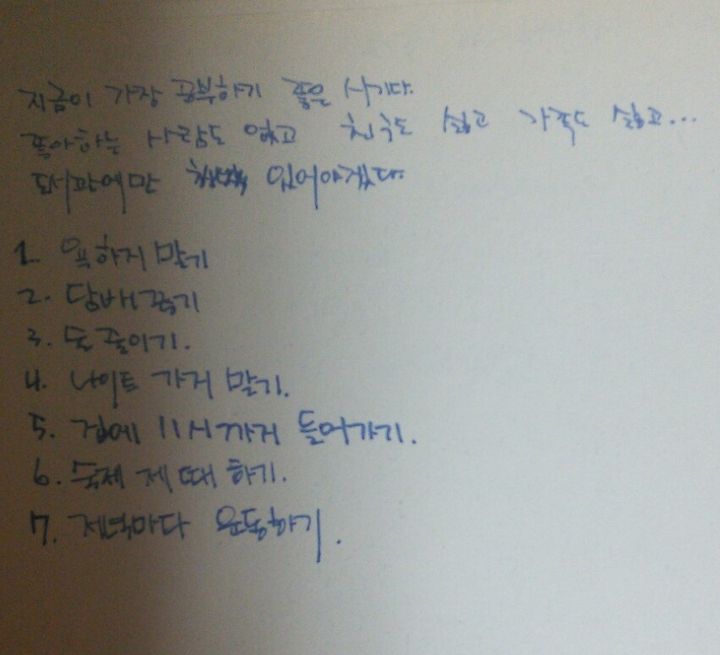 지금이 가장 공부하기 좋은 시기다.
좋아하는 사람도 없고 친구도 싫고 가족도 싫고...
도서관에만 있어야겠다.
1. 욕하지 말기
2. 담배 끊기
3. 술 줄이기.
4. 나이트 가지 말기.
5. 집에 11시까지 들어가기.
6. 숙제 제 때 하기.
7. 저녁마다 운동하기.